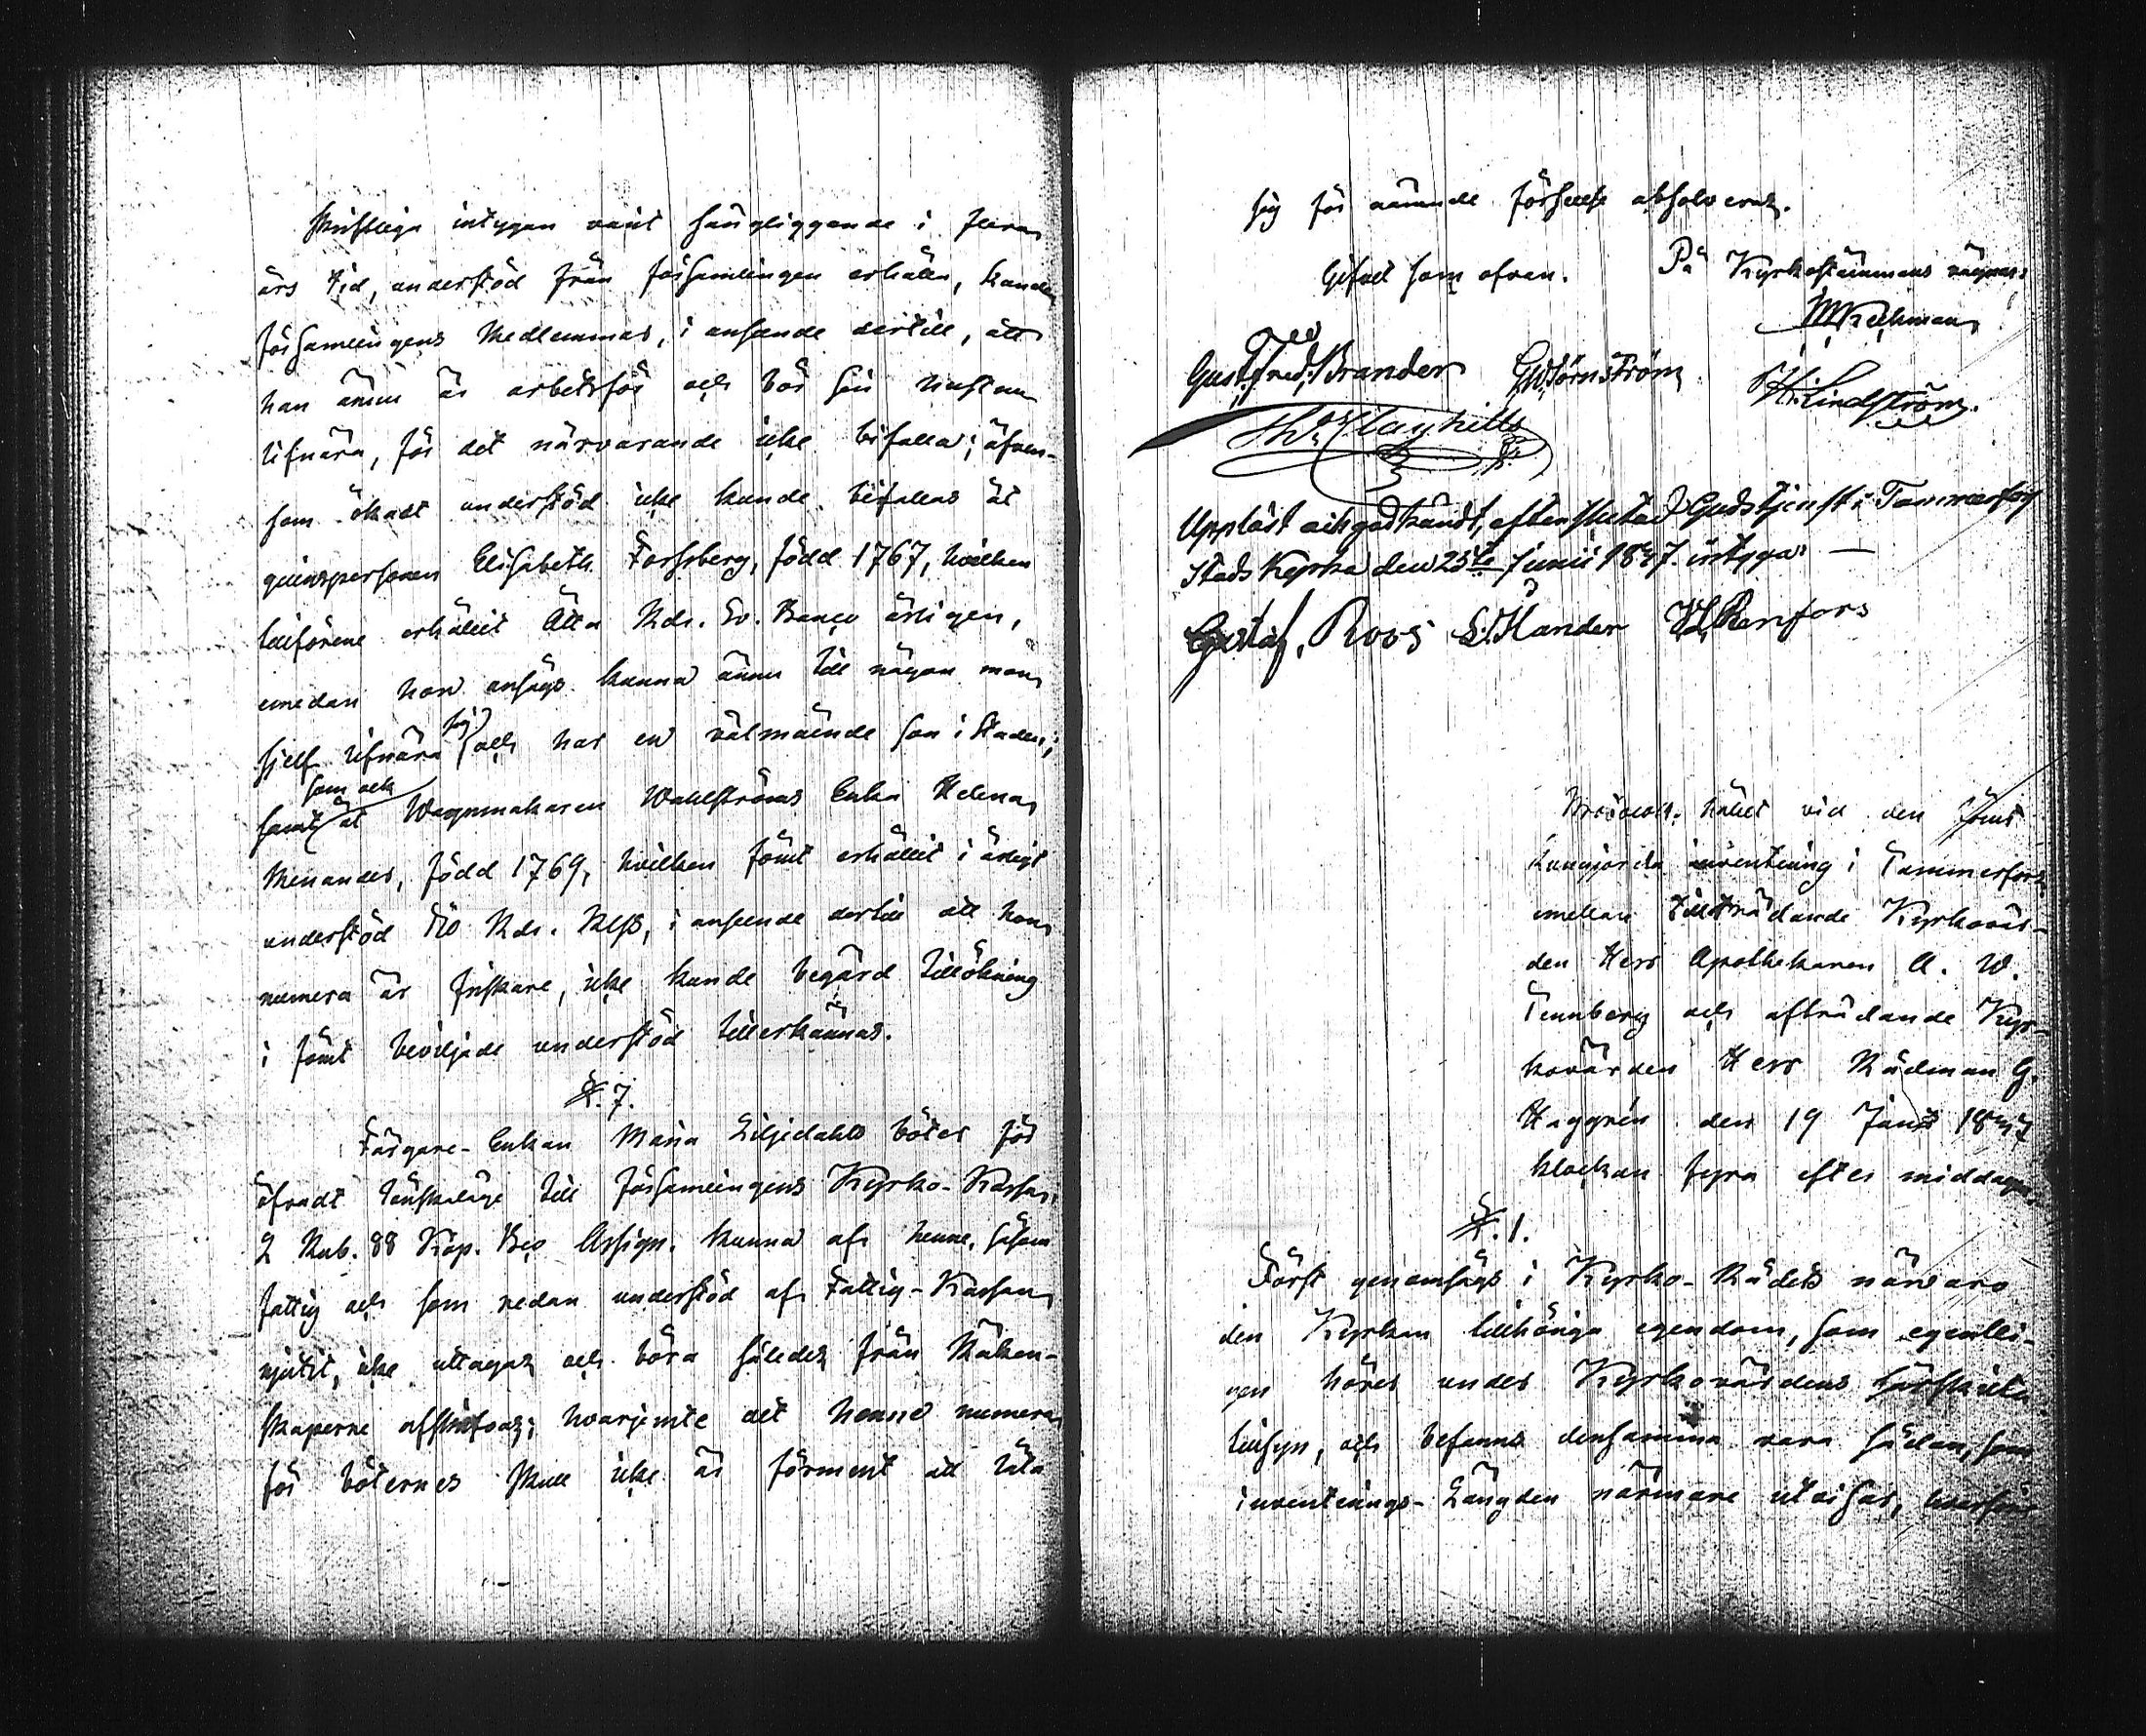 skriftliga intygen varit sängliggande i flera
års tid, understöd från församlingen erhålla, kunde
församlingens Medlemmar, i anseende dertill, att
han ännu är arbetsför och bör sin hustru
lifnära, för det närvarande icke bifalla; äfven-
som ökadt understöd icke kunde bifallas åt
qvinspersonen Elisabeth Forssberg, född 1767, hvilken
tillförene erhållit Åtta Rdr. Sv. Banco årligen,
emedan hon ansågs kunna ännu till någon mon
sjelf lifnära sig och har en välmående son i Staden;
som ock
samt åt Vagnmakaren Wahlströms Enka Helena
Menander, född 1769, hvilken förut erhållit i årligt
understöd Tio Rdr. Rgs, i anseende dertill att hon
numera är friskare, icke kunde begärd tillökning
i förut beviljade understöd tillerkännas.
§. 7.
Färgare-Enkan Maria Liljedahls böter för
öfradt lönskaläge till församlingens Kyrko-Kassa,
2 Rub. 88 Kop. Bco Assign. kunna af henne, såsom
fattig och som redan understöd af Fattig-Kassan
njutit, icke uttagas och böra således från Räken-
skaperne afskrifvas; hvarjemte det henne numera
för böternes skull icke är förment att låta
sig för nämnde förseelse absolveras.
Gifvet som ofvan. På Kyrkostämmans vägnar:
Gust. Fred. Brander G W Törnström H. Lindström.
Th. Clayhills
Uppläst och godkändt, efter slutad Gudstjenst i Tammerfors
Stads Kyrka den 25te Junii 1847. intyga: —
Gustaf. Roos
Protocoll, hållet vid den förut
kungjorda inventering i Tammerfors
emellan tillträdande Kyrkovär-
den Herr Apothekaren A. W.
Tennberg och afträdande Kyr-
kovärden Herr Rådman G.
Haggrén den 19 Junii 1847
klockan fyra efter middagen.
§. 1.
Först genomsågs i Kyrko-Rådets närvaro
den Kyrkan tillhöriga egendom, som egentli-
gen hörer under Kyrkovärdens särskilta
tillsyn, och befanns densamma vara sådan, som
inventerings-Längden närmare utvisar, hvarför